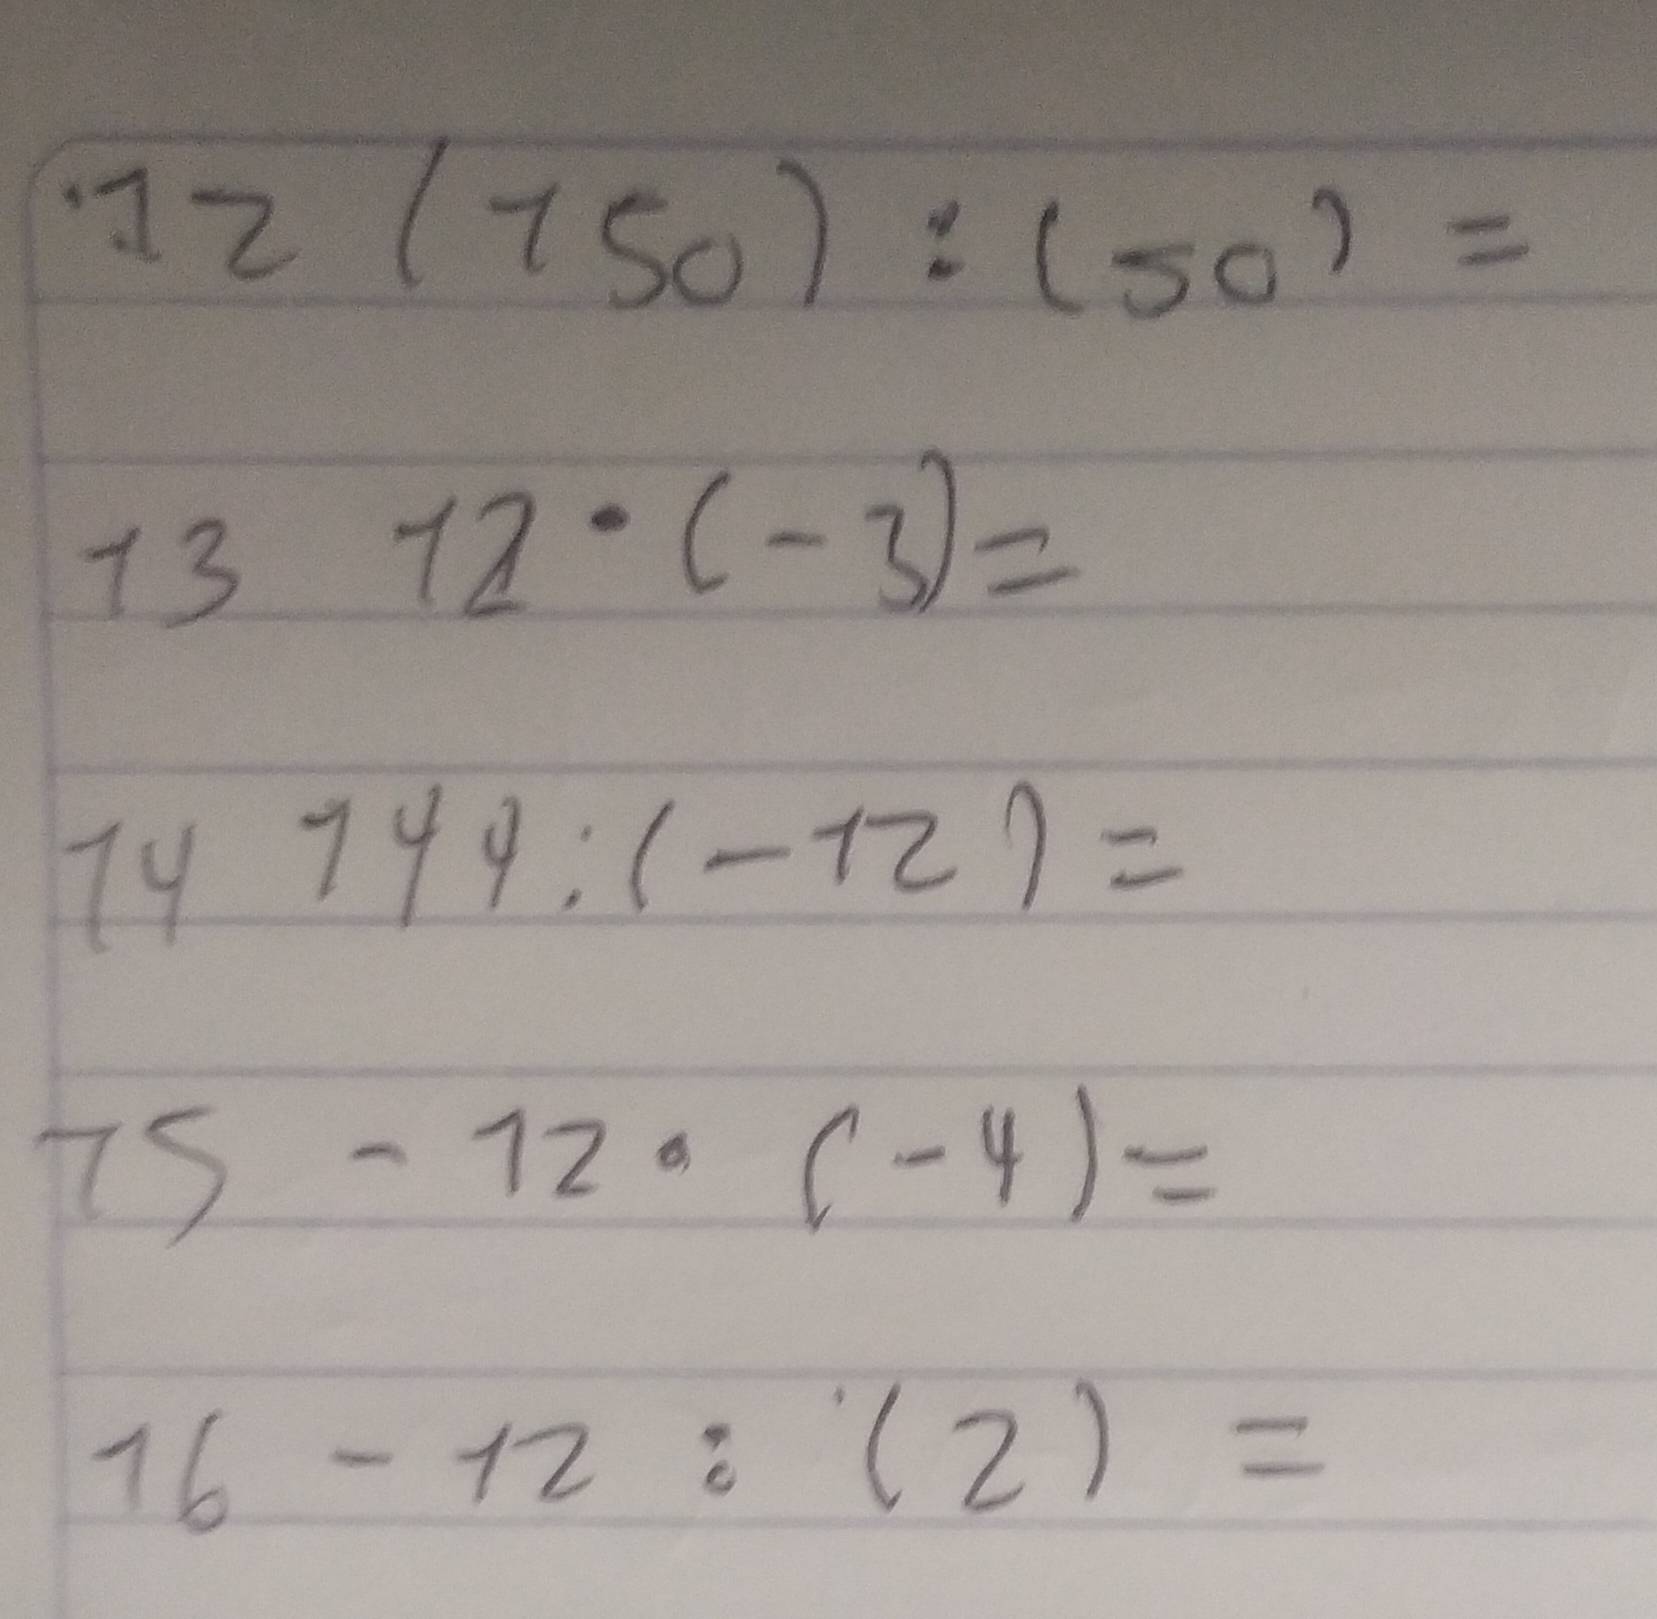 12 (150) : (50) =
13 12 · (-3) =
14 144 : (-12) =
15 -12 · (-4) =
16 -12 : (2) =